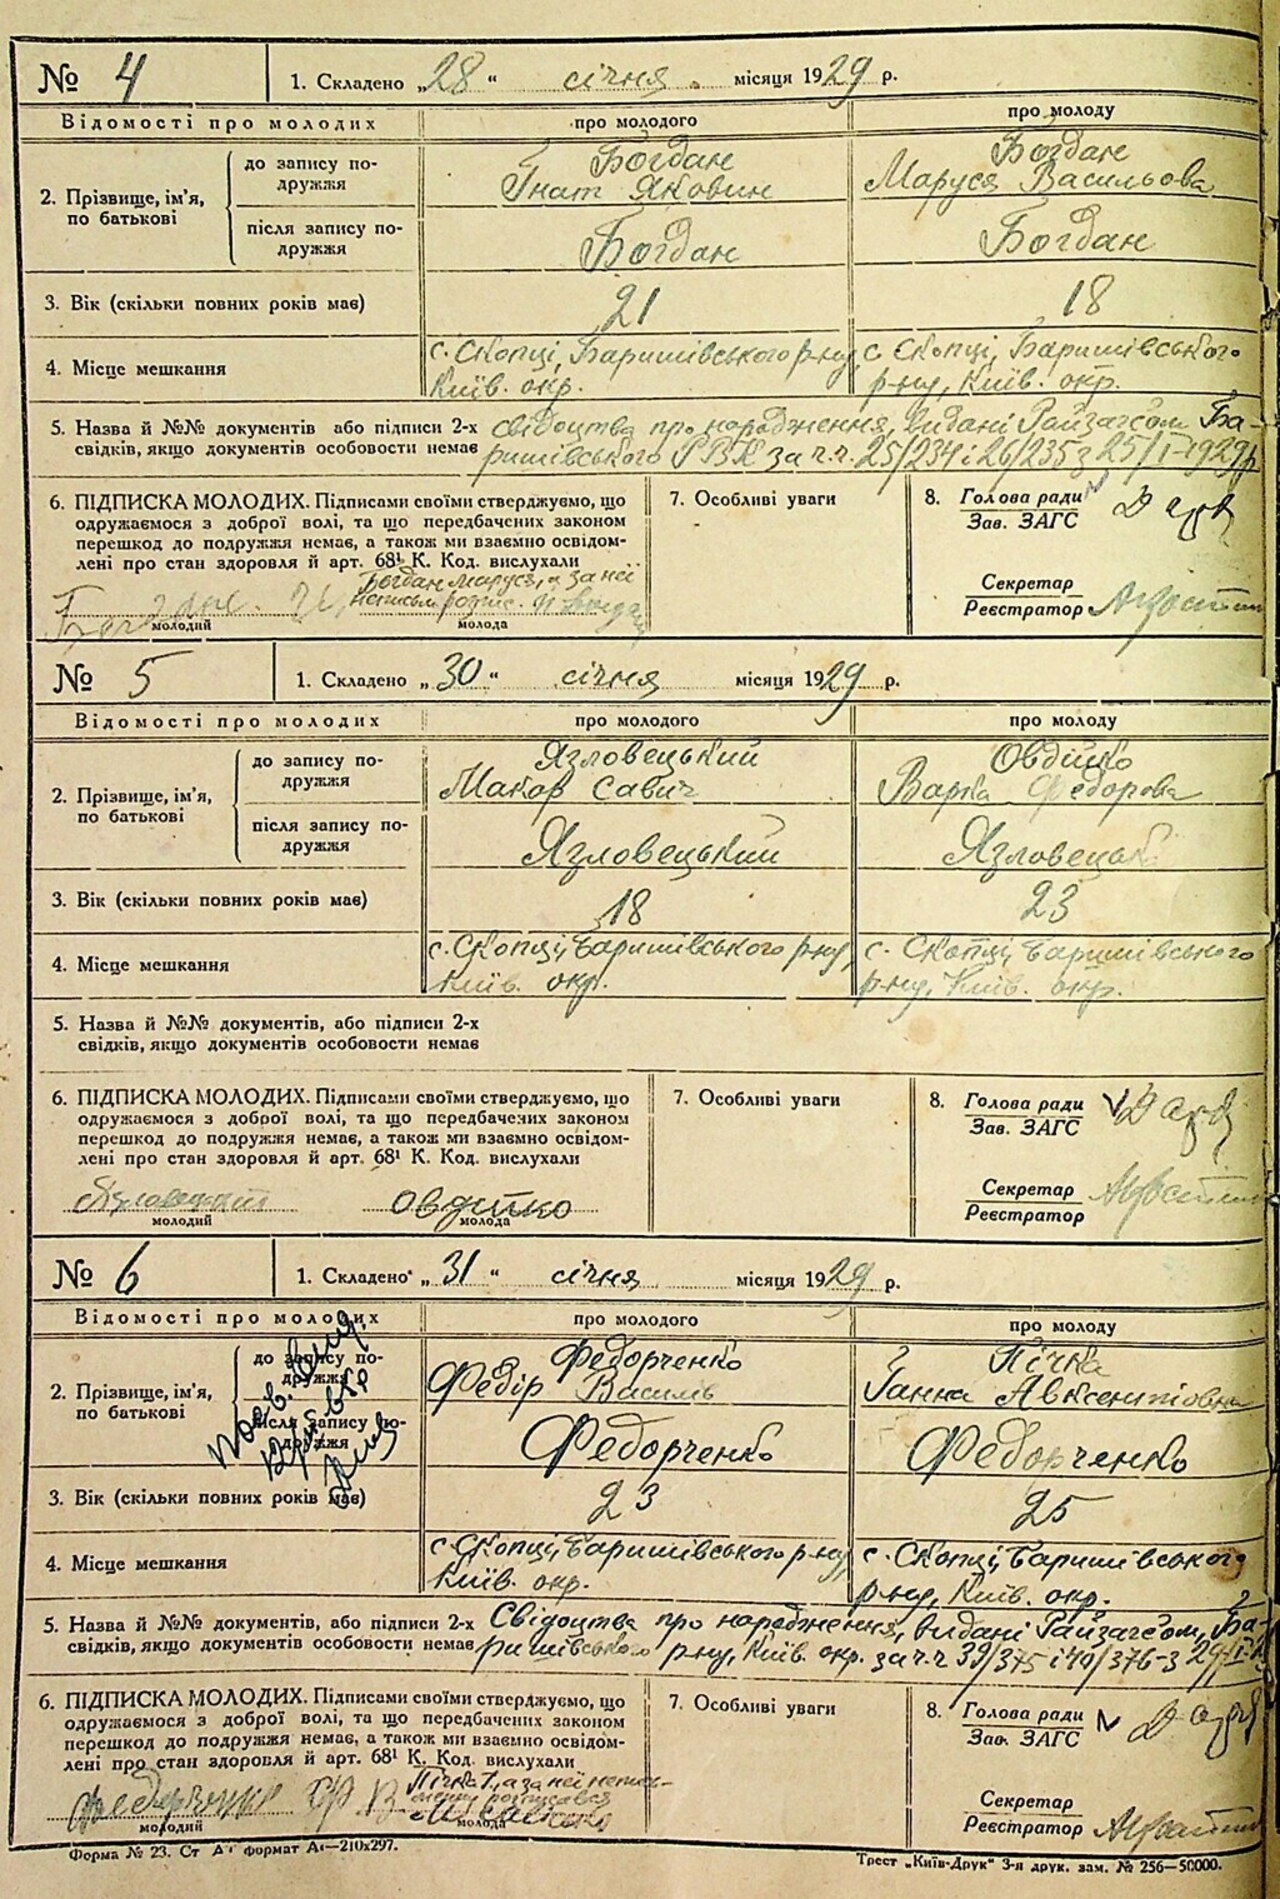 № 4 1. Складено „28“ січня місяця 1929 р.
Відомості про молодих про молодого про молоду
2. Прізвище, ім'я, по батькові
до запису подружжя
Богдан
Гнат Якович
Богдан
Маруся Васильова
після запису подружжя
Богдан
Богдан
3. Вік (скільки повних років має) 21 18
4. Місце мешкання
с. Скопці, Баришівського р-ну,
Київ. окр.
с. Скопці, Баришівського
р-ну, Київ. окр.
5. Назва й №№ документів або підписи 2-х свідоцтва про народження, видані Райзагсом Ба-
свідків, якщо документів особовости немає ришівського РВК за ч.ч. 25/234 і 26/235 з 25/I-1929р
6. ПІДПИСКА МОЛОДИХ. Підписами своїми стверджуємо, що
одружаємося з доброї волі, та що передбачених законом
перешкод до подружжя немає, а також ми взаємно освідом-
лені про стан здоровля й арт. 68¹ К. Код. вислухали
Богдан Маруся, а за неї
неписьм. розпис.
молодий молода
7. Особливі уваги
8. Голова ради
Зав. ЗАГС
Секретар
Реєстратор
№ 5 1. Складено „30“ січня місяця 1929 р.
Відомості про молодих про молодого про молоду
2. Прізвище, ім'я, по батькові
до запису подружжя
Язловецький
Макар Савич
Овдійко
Варка Федорова
після запису подружжя
Язловецький
Язловецька
3. Вік (скільки повних років має) 18 23
4. Місце мешкання
с. Скопці, Баришівського р-ну,
Київ. окр.
с. Скопці, Баришівського
р-ну, Київ. окр.
5. Назва й №№ документів, або підписи 2-х
свідків, якщо документів особовости немає
6. ПІДПИСКА МОЛОДИХ. Підписами своїми стверджуємо, що
одружаємося з доброї волі, та що передбачених законом
перешкод до подружжя немає, а також ми взаємно освідом-
лені про стан здоровля й арт. 68¹ К. Код. вислухали
Овдійко
молодий молода
7. Особливі уваги
8. Голова ради
Зав. ЗАГС
Секретар
Реєстратор
№ 6 1. Складено „31“ січня місяця 1929 р.
Відомості про молодих про молодого про молоду
2. Прізвище, ім'я, по батькові
до запису подружжя
Федорченко
Федір Василів
Пічка
Ганна Авксентіовна
після запису подружжя
Федорченко
Федорченко
3. Вік (скільки повних років має) 23 25
4. Місце мешкання
с. Скопці, Баришівського р-ну,
Київ. окр.
с. Скопці, Баришівського
р-ну, Київ. окр.
5. Назва й №№ документів, або підписи 2-х Свідоцтва про народження, видані Райзагсом, Ба-
свідків, якщо документів особовости немає ришівського р-ну, Київ. окр. за ч.ч 39/375 і 40/376 - з 29/I-
6. ПІДПИСКА МОЛОДИХ. Підписами своїми стверджуємо, що
одружаємося з доброї волі, та що передбачених законом
перешкод до подружжя немає, а також ми взаємно освідом-
лені про стан здоровля й арт. 68¹ К. Код. вислухали
Федорченко Ф В
Пічка Г., а за неї непись-
менну розписався
молодий молода
7. Особливі уваги
8. Голова ради
Зав. ЗАГС
Секретар
Реєстратор
Форма № 23. Ст А⁴ формат А₄—210х297.
Трест „Київ-Друк“ 3-я друк. зам. № 256—50000.